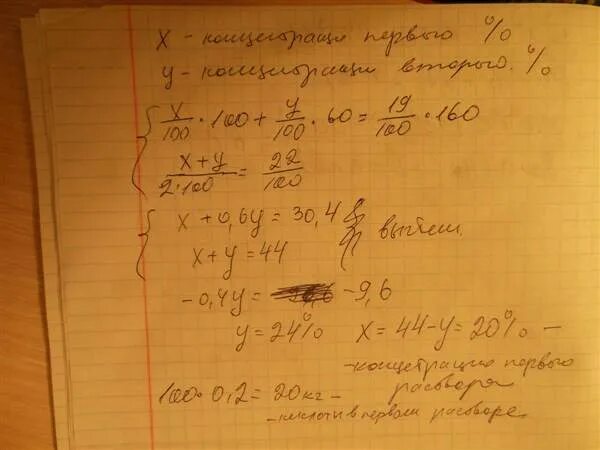 x - концетраци первого %
y - концетраци второго. %
x/100 · 100 + y/100 · 60 = 19/100 · 160
x+y/2·100 = 22/100
x + 0,6y = 30,4
вычтем.
x+y = 44
-0,4y = -9,6
y = 24% x = 44-y = 20% -
- концетрацию первого
раствора
100·0,2 = 20кг -
- кислоты в первом растворе